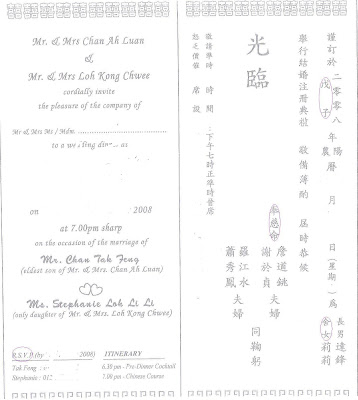 Mr. & Mrs Chan Ah Luan
&
Mr. & Mrs Loh Kong Chwee
cordially invite
the pleasure of the company of
Mr & Mrs Ms / Mdm.
to a we ling din as
on 2008
at 7.00pm sharp
on the occasion of the marriage of
Mr. Chan Tak Feng
(eldest son of Mr. & Mrs. Chan Ah Luan)
Ms. Stephanie Loh Li Li
(only daughter of Mr. & Mrs. Loh Kong Chwee)
R.S.V.P. (by 2008) ITINERARY
Tak Fong : 6.30 pm - Pre-Dinner Cocktail
Stephanie : 012 7.00 pm - Chinese Course
謹訂於二零零八年
戊子
陽曆 月 日(星期 )為
農曆
長男達鋒
莉莉
舉行結婚註冊典禮 敬備薄酌 屆時恭候
光臨
奉慈命
詹道銚 夫婦
謝於貞
羅江水 夫婦
蕭秀鳳
同鞠躬
敬請準時 時間:下午七時正準時登席
恕乏價催 席設